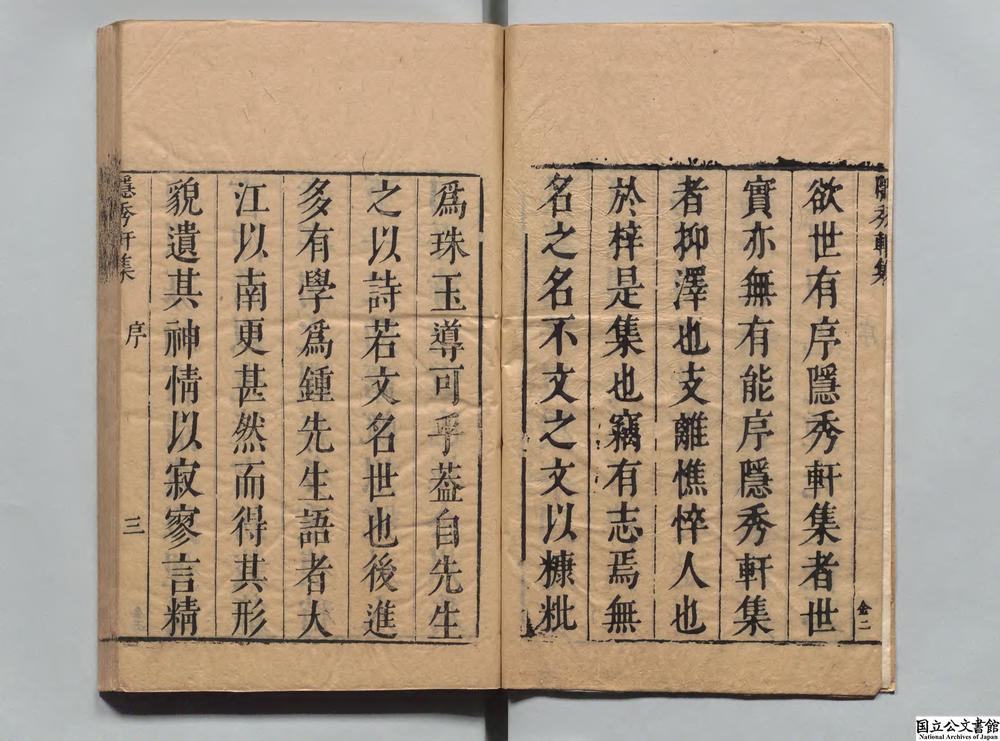 隱秀軒集
金二
欲世有序隱秀軒集者世
實亦無有能序隱秀軒集
者抑澤也支離憔悴人也
於梓是集也竊有志焉無
名之名不文之文以糠粃
爲珠玉導可乎葢自先生
之以詩若文名世也後進
多有學爲鍾先生語者大
江以南更甚然而得其形
貌遺其神情以寂寥言精
隱秀軒集
序
三
国立公文書館
National Archives of Japan